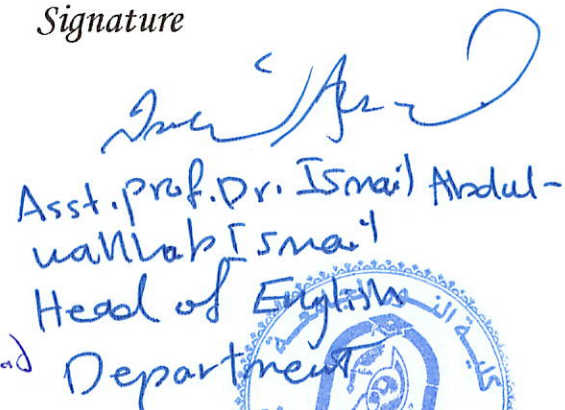 Signature
Asst.prof.Dr. Ismail Abdul-
wahhab Ismail
Head of English
Department
كلية